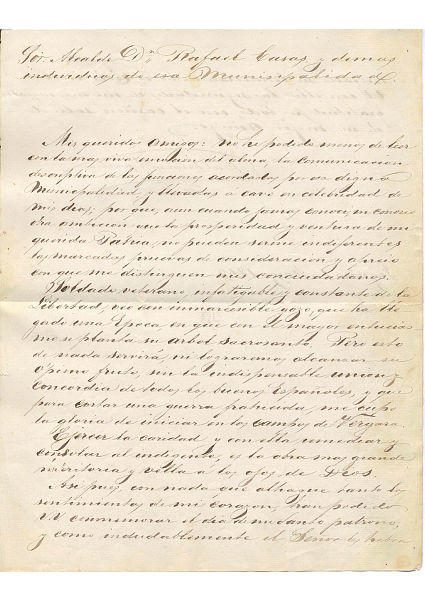 Sor. Alcalde Dn. Rafael Casas y demas
individuos de esa Municipalidad.
Mis queridos amigos: no he podido menos de leer
con la mas viva emocion del alma, la comunicacion
descriptiva de las funciones acordadas por esa digna
Municipalidad, y llevadas a cavo en celebridad de
mis dias; por que, aun cuando jamas conoci, ni conozco
otra ambicion que la prosperidad y ventura de mi
querida Patria, no pueden serme indiferentes
las marcadas pruebas de consideracion y aprecio
con que me distinguen mis conciudadanos.
Soldado veterano, infatigable y constante de la
Libertad, veo con inmarcesible gozo, que ha lle
gado una Epoca, en que con el mayor entusias
mo se planta su Arbol Sacrosanto. Pero esto
de nada servirá, ni lograramos alcanzar su
opimo fruto, sin la indispensable union y
concordia de todos los buenos Españoles, y que
para cortar una guerra fratricida, me cupo
la gloria de iniciar en los campos de Vergara.
Ejercer la caridad y con ella remediar y
consolar al indigente, es la obra mas grande
meritoria y bella a los ojos de Dios.
Asi pues, con nada que alhague tanto los
sentimientos de mi corazon, han podido
VV conmemorar el dia de mi santo patrono,
y como indudablemente el Señor les habra